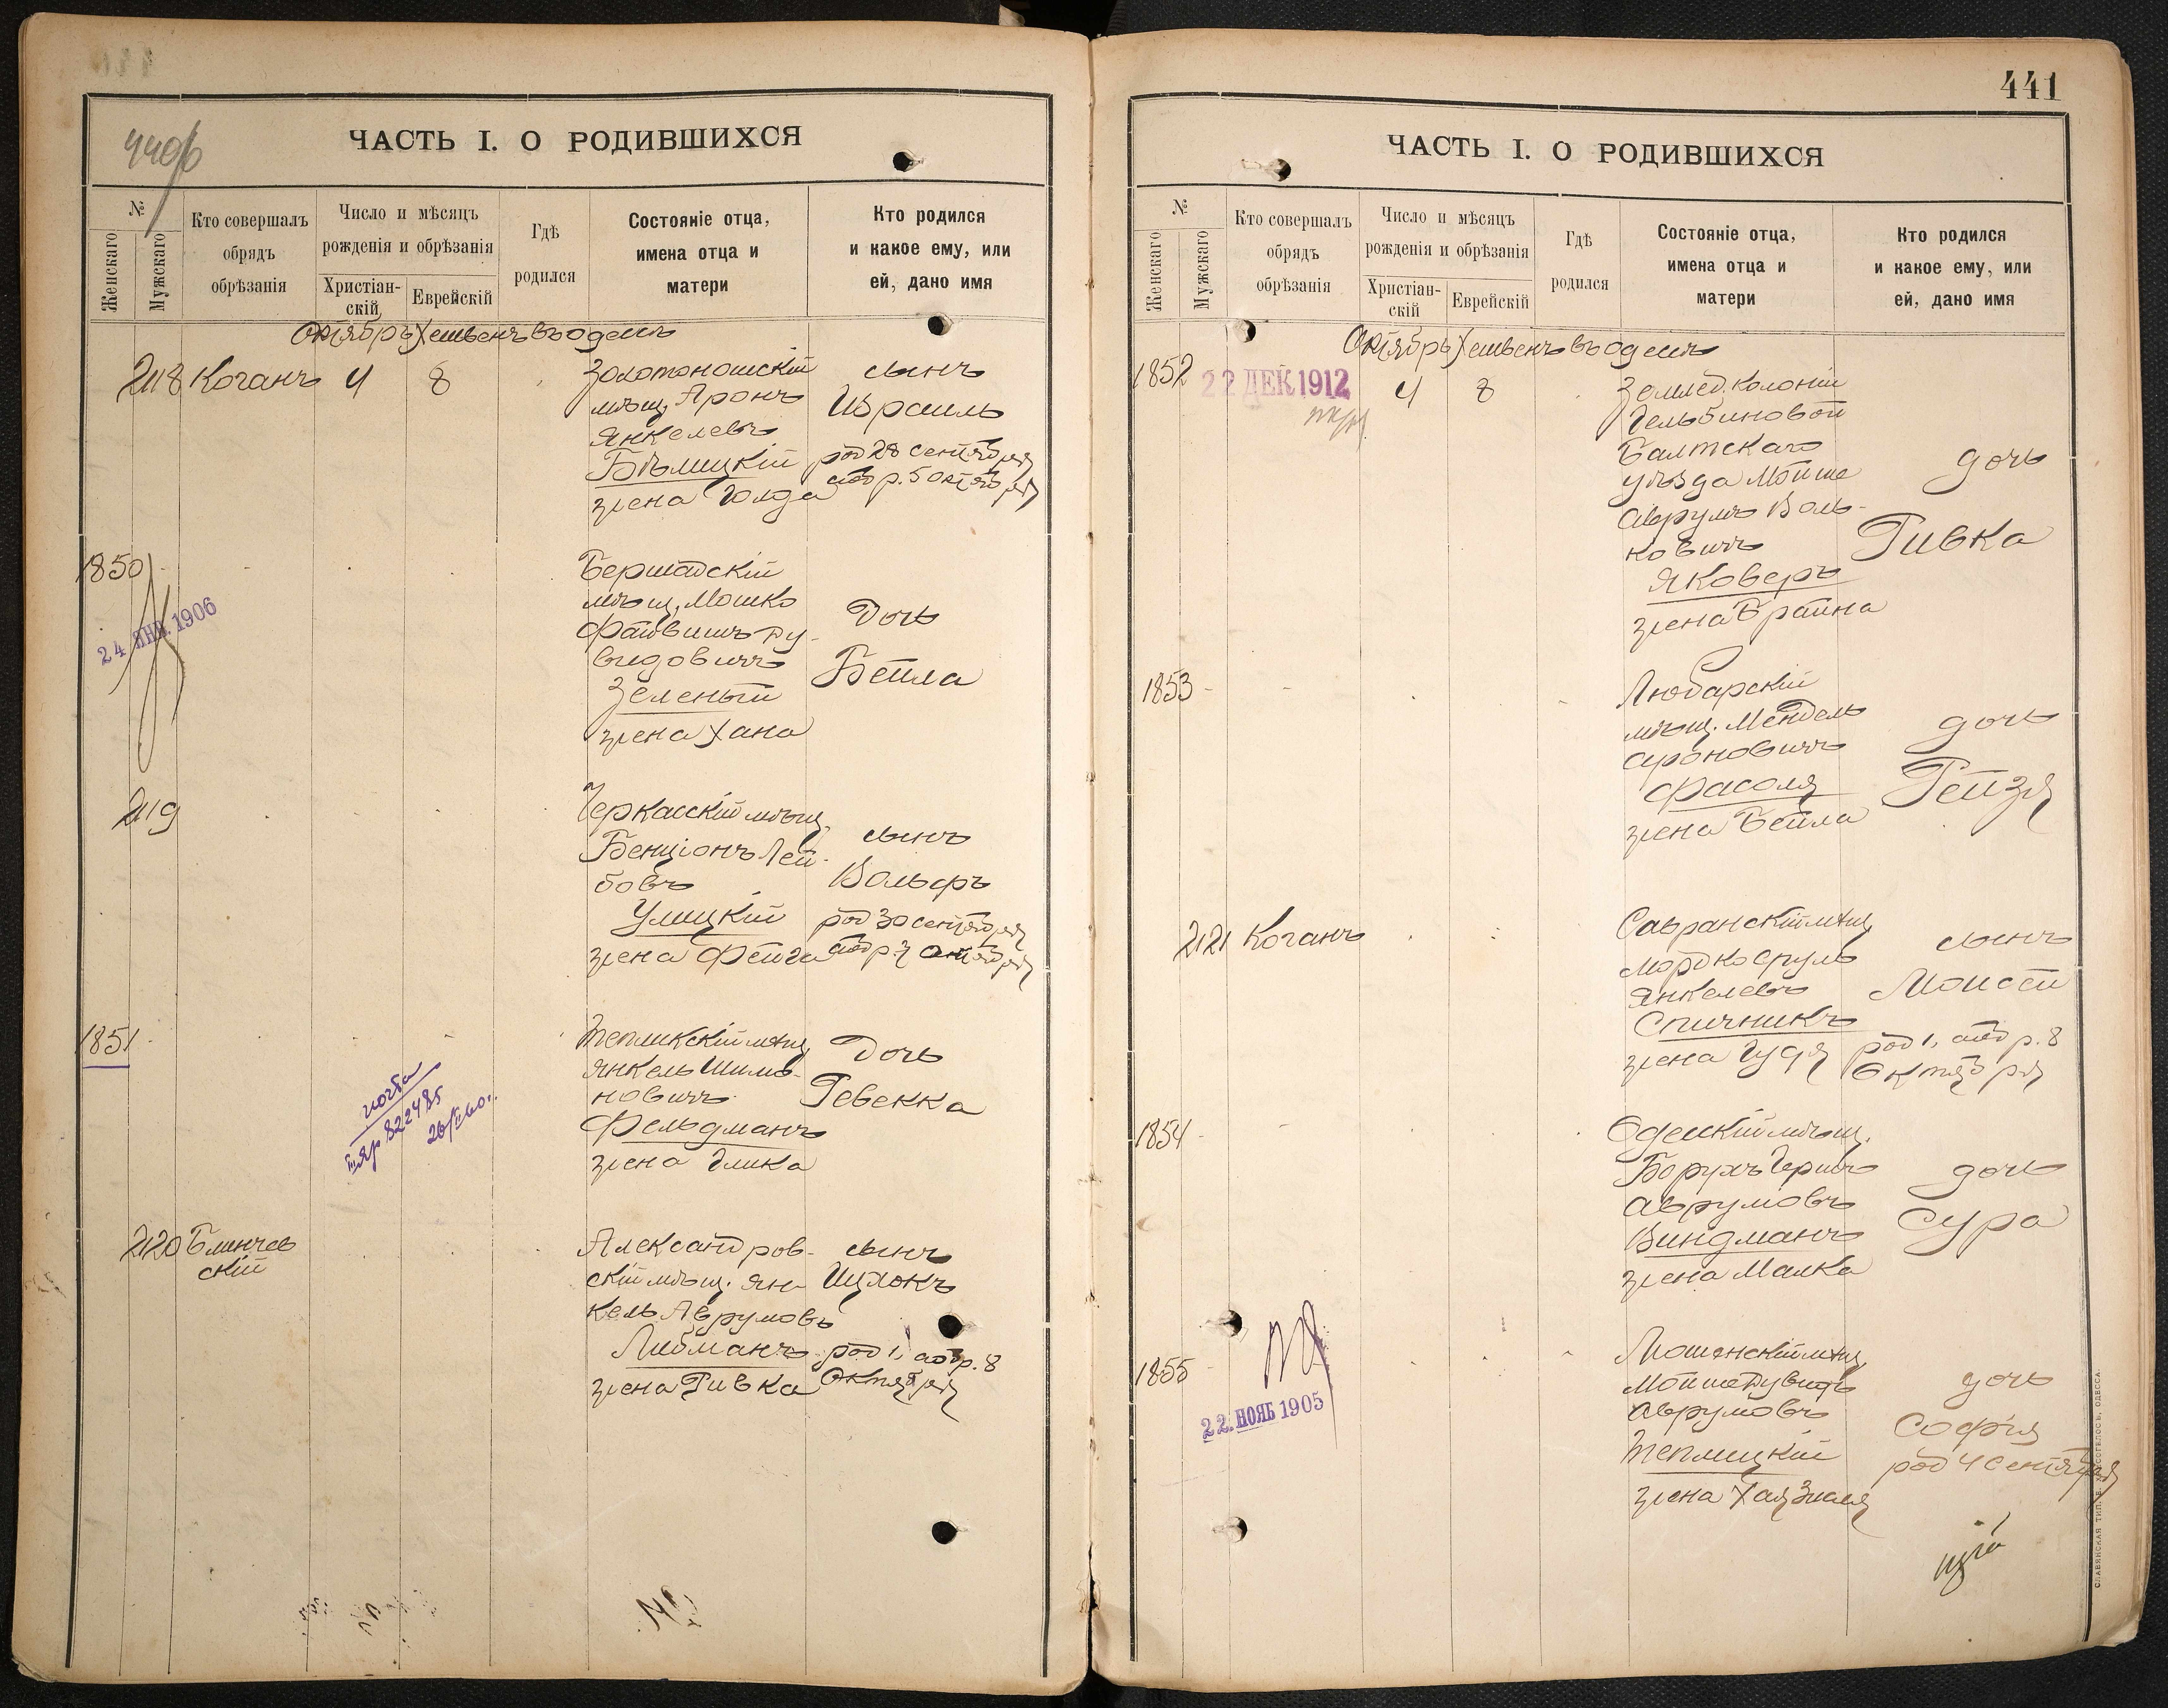 440б
ЧАСТЬ I. О РОДИВШИХСЯ
№
Женскаго
Мужскаго
Кто совершалъ
обрядъ
обрѣзанія
Число и мѣсяцъ
рожденія и обрѣзанія
Христіан-
скій
Еврейскій
Гдѣ
родился
Состояніе отца,
имена отца и
матери
Кто родился
и какое ему, или
ей, дано имя
Октябрь Хешвенъ въ Одессѣ
2118 Коганъ 4 8
Золотоношскій
мѣщ. Аронъ
Янкелевъ
Бѣлицкій
жена Голда
сынъ
Израиль
род 28 сентября
обр. 5 октября
1850
24 ЯНВ. 1906
Бершадскій
мѣщ. Мошко
Файвишъ Ду-
видовичъ
Зеленый
жена Хана
Дочь
Бейла
2119
Черкасскій мѣщ.
Бенціонъ Лей-
бовъ
Улицкій
жена Фейга
сынъ
Вольфъ
род 30 сентября
обр. 7 октября
1851
Тепликскій мѣщ.
Янкель Шимо-
новичъ
Фельдманъ
жена Глика
Дочь
Ревекка
822485
2120 Блинчев
скій
Александров-
скій мѣщ. Ян-
кель Аврумовъ
Либманъ
жена Ривка
сынъ
Ицхокъ
род 1, обр. 8
Октября
441
ЧАСТЬ I. О РОДИВШИХСЯ
№
Женскаго
Мужскаго
Кто совершалъ
обрядъ
обрѣзанія
Число и мѣсяцъ
рожденія и обрѣзанія
Христіан-
скій
Еврейскій
Гдѣ
родился
Состояніе отца,
имена отца и
матери
Кто родился
и какое ему, или
ей, дано имя
Октябрь Хешвенъ въ Одессѣ
1852
22 ДЕК 1912
4 8
Землед. колоніи
Гельбиновой
Балтскаго
уѣзда Мойше
Аврумъ Воль-
ковичъ
Яковеръ
жена Брайна
дочь
Ривка
1853
Любарскій
мѣщ. Мендель
Ароновичъ
Фасоля
жена Бейла
дочь
Рейзя
2121 Коганъ
Савранскій мѣщ.
Мордко Сруль
Янкелевъ
Спичникъ
жена Гудя
сынъ
Моисей
род 1, обр. 8
Октября
1854
Одесскій мѣщ.
Борухъ Гершъ
Аврумовъ
Виндманъ
жена Малка
дочь
Сура
1855
22. НОЯБ 1905
Мошенскій мѣщ.
Мойше Дувидъ
Аврумовъ
Теплицкій
жена Хая
дочь
Софія
род 4 сентября
СЛАВЯНСКАЯ ТИП. Е. ХРИСОГЕЛОСЪ, ОДЕССА.